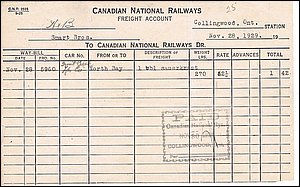 CANADIAN NATIONAL RAILWAYS
FREIGHT ACCOUNT
Collingwood, Ont.
STATION
Smart Bros.
Nov. 28, 1929. 19
TO CANADIAN NATIONAL RAILWAYS DR.
WAY-BILL
DATE PRO. NO. CAR NO. FROM OR TO DESCRIPTION OF FREIGHT WEIGHT LBS. RATE ADVANCES TOTAL
Nov. 28 5960 North Bay 1 bbl sauerkraut 270 52½ 1 42
PAID
Canadian National
COLLINGWOOD